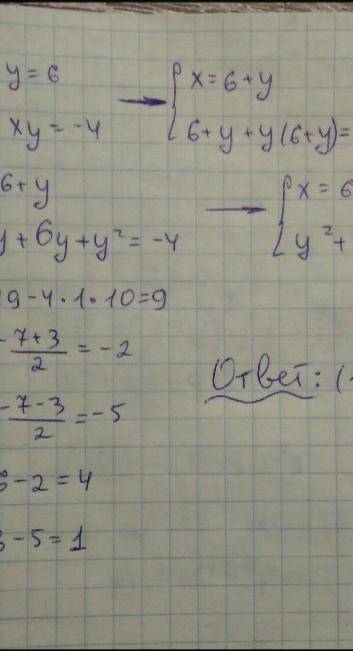 y = 6 → { x = 6 + y
xy = -4 6 + y + y(6 + y) =
6 + y → { x = 6
y + 6y + y² = -4 y² +
9 - 4 · 1 · 10 = 9
-7+3/2 = -2
Ответ: (
-7-3/2 = -5
6 - 2 = 4
6 - 5 = 1